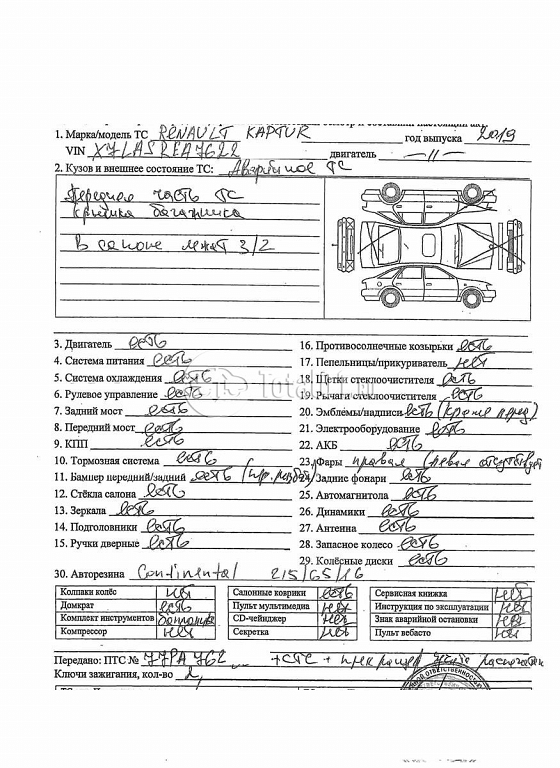 1. Марка/модель ТС RENAULT KAPTUR год выпуска 2019
VIN X7LASREA7622 двигатель —//—
2. Кузов и внешнее состояние ТС: Аварийное ТС
Передняя часть ТС
крышка багажника
В салоне лежат З/Ч
3. Двигатель есть
4. Система питания есть
5. Система охлаждения есть
6. Рулевое управление есть
7. Задний мост есть
8. Передний мост есть
9. КПП есть
10. Тормозная система есть
11. Бампер передний/задний есть
12. Стёкла салона есть
13. Зеркала есть
14. Подголовники есть
15. Ручки дверные есть
16. Противосолнечные козырьки есть
17. Пепельницы/прикуриватель нет
18. Щетки стеклоочистителя есть
19. Рычаги стеклоочистителя есть
20. Эмблемы/надписи есть (кроме перед)
21. Электрооборудование есть
22. АКБ есть
23. Фары правая (левая отсутствует
24. Задние фонари есть
25. Автомагнитола есть
26. Динамики есть
27. Антенна есть
28. Запасное колесо есть
29. Колёсные диски есть
30. Авторезина Continental 215/65/16
Колпаки колёс нет
Домкрат есть
Комплект инструментов
Компрессор нет
Салонные коврики есть
Пульт мультимедиа нет
CD-чейнджер нет
Секретка нет
Сервисная книжка нет
Инструкция по эксплуатации нет
Знак аварийной остановки нет
Пульт вебасто нет
Передано: ПТС № 77РА 762 + СТС +
Ключи зажигания, кол-во 2